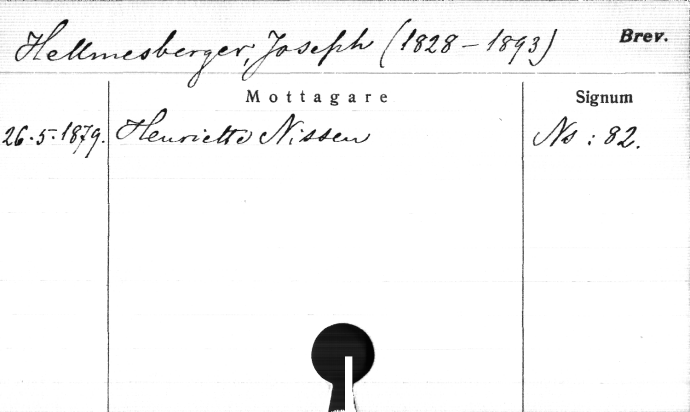 Hellmesberger, Joseph (1828 – 1893) Brev.
Mottagare Signum
26.5.1879. Henriette Nissen Ns : 82.